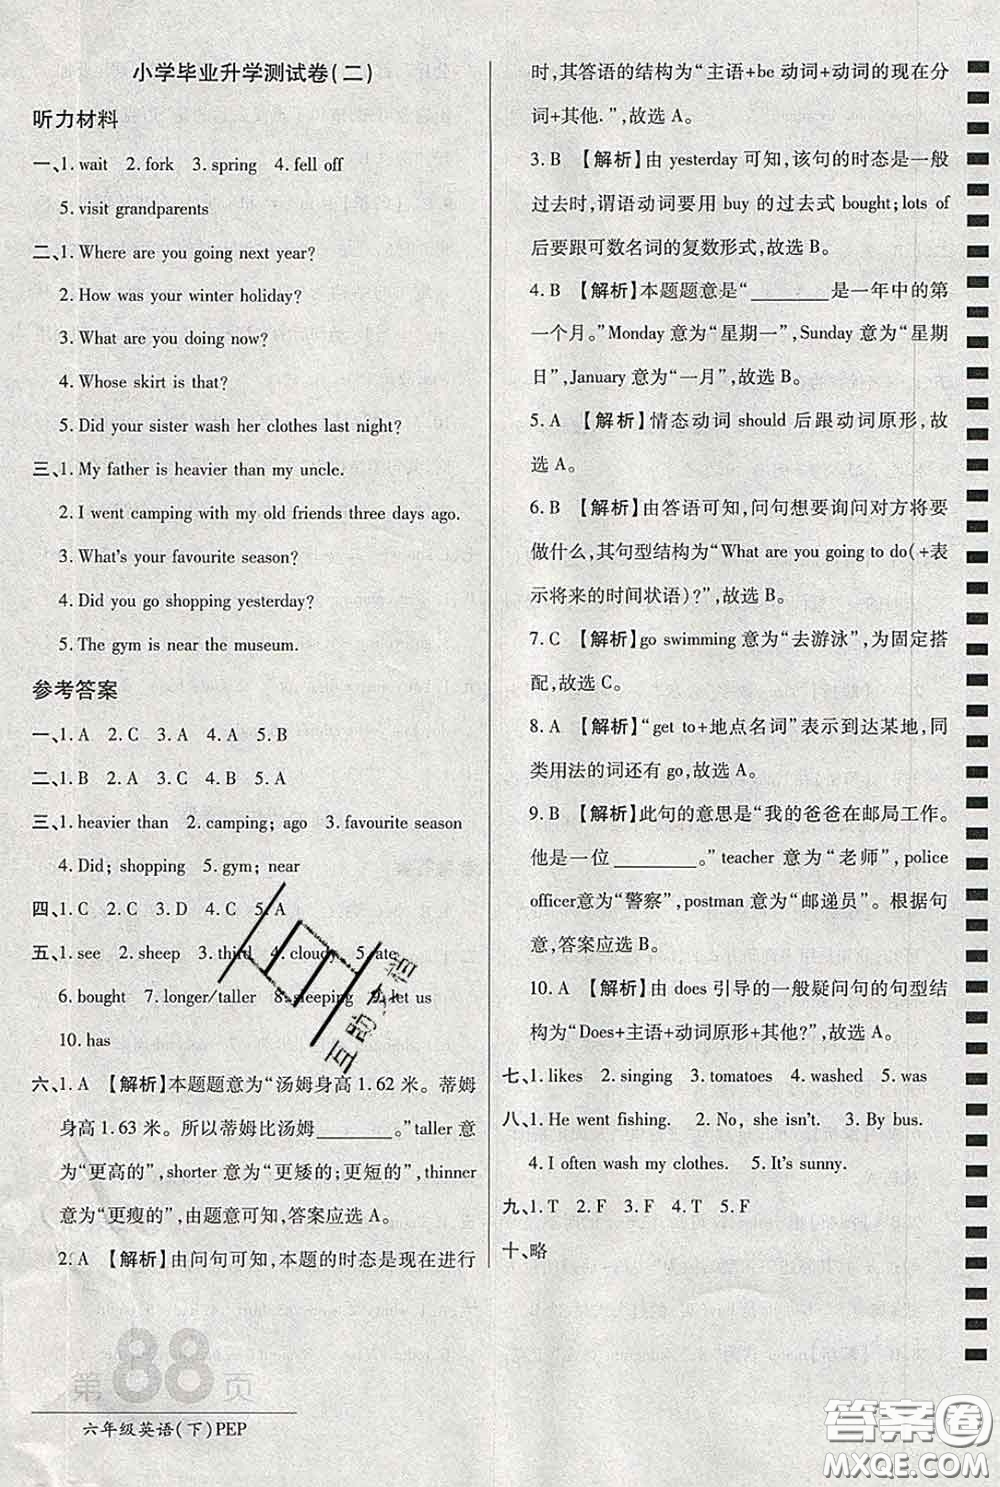 小学毕业升学测试卷(二)
听力材料
一、1. wait 2. fork 3. spring 4. fell off
5. visit grandparents
二、1. Where are you going next year?
2. How was your winter holiday?
3. What are you doing now?
4. Whose skirt is that?
5. Did your sister wash her clothes last night?
三、1. My father is heavier than my uncle.
2. I went camping with my old friends three days ago.
3. What's your favourite season?
4. Did you go shopping yesterday?
5. The gym is near the museum.
参考答案
一、1. A 2. C 3. A 4. A 5. B
二、1. B 2. A 3. C 4. B 5. A
三、1. heavier than 2. camping; ago 3. favourite season
4. Did; shopping 5. gym; near
四、1. C 2. C 3. D 4. C 5. A
五、1. see 2. sheep 3. third 4. cloudy 5. ate
6. bought 7. longer/taller 8. sleeping 9. let us
10. has
六、1. A 【解析】本题题意为“汤姆身高 1.62 米。蒂姆
身高 1.63 米。所以蒂姆比汤姆________。”taller 意
为“更高的”,shorter 意为“更矮的;更短的”,thinner
意为“更瘦的”,由题意可知,答案应选 A。
2. A 【解析】由问句可知,本题的时态是现在进行
时,其答语的结构为“主语+be 动词+动词的现在分
词+其他.”,故选 A。
3. B 【解析】由 yesterday 可知,该句的时态是一般
过去时,谓语动词要用 buy 的过去式 bought;lots of
后要跟可数名词的复数形式,故选 B。
4. B 【解析】本题题意是“________是一年中的第
一个月。”Monday 意为“星期一”,Sunday 意为“星期
日”,January 意为“一月”,故选 B。
5. A 【解析】情态动词 should 后跟动词原形,故
选 A。
6. B 【解析】由答语可知,问句想要询问对方将要
做什么,其句型结构为“What are you going to do(+表
示将来的时间状语)?”,故选 B。
7. C 【解析】go swimming 意为“去游泳”,为固定搭
配,故选 C。
8. A 【解析】“get to+地点名词”表示到达某地,同
类用法的词还有 go,故选 A。
9. B 【解析】此句的意思是“我的爸爸在邮局工作。
他是一位________。”teacher 意为“老师”,police
officer意为“警察”,postman 意为“邮递员”。根据句
意,答案应选 B。
10. A 【解析】由 does 引导的一般疑问句的句型结
构为“Does+主语+动词原形+其他?”,故选 A。
七、1. likes 2. singing 3. tomatoes 4. washed 5. was
八、1. He went fishing. 2. No, she isn't. 3. By bus.
4. I often wash my clothes. 5. It's sunny.
九、1. T 2. F 3. F 4. T 5. F
十、略
第88页
六年级英语(下)PEP
答案圈
MXQE.COM